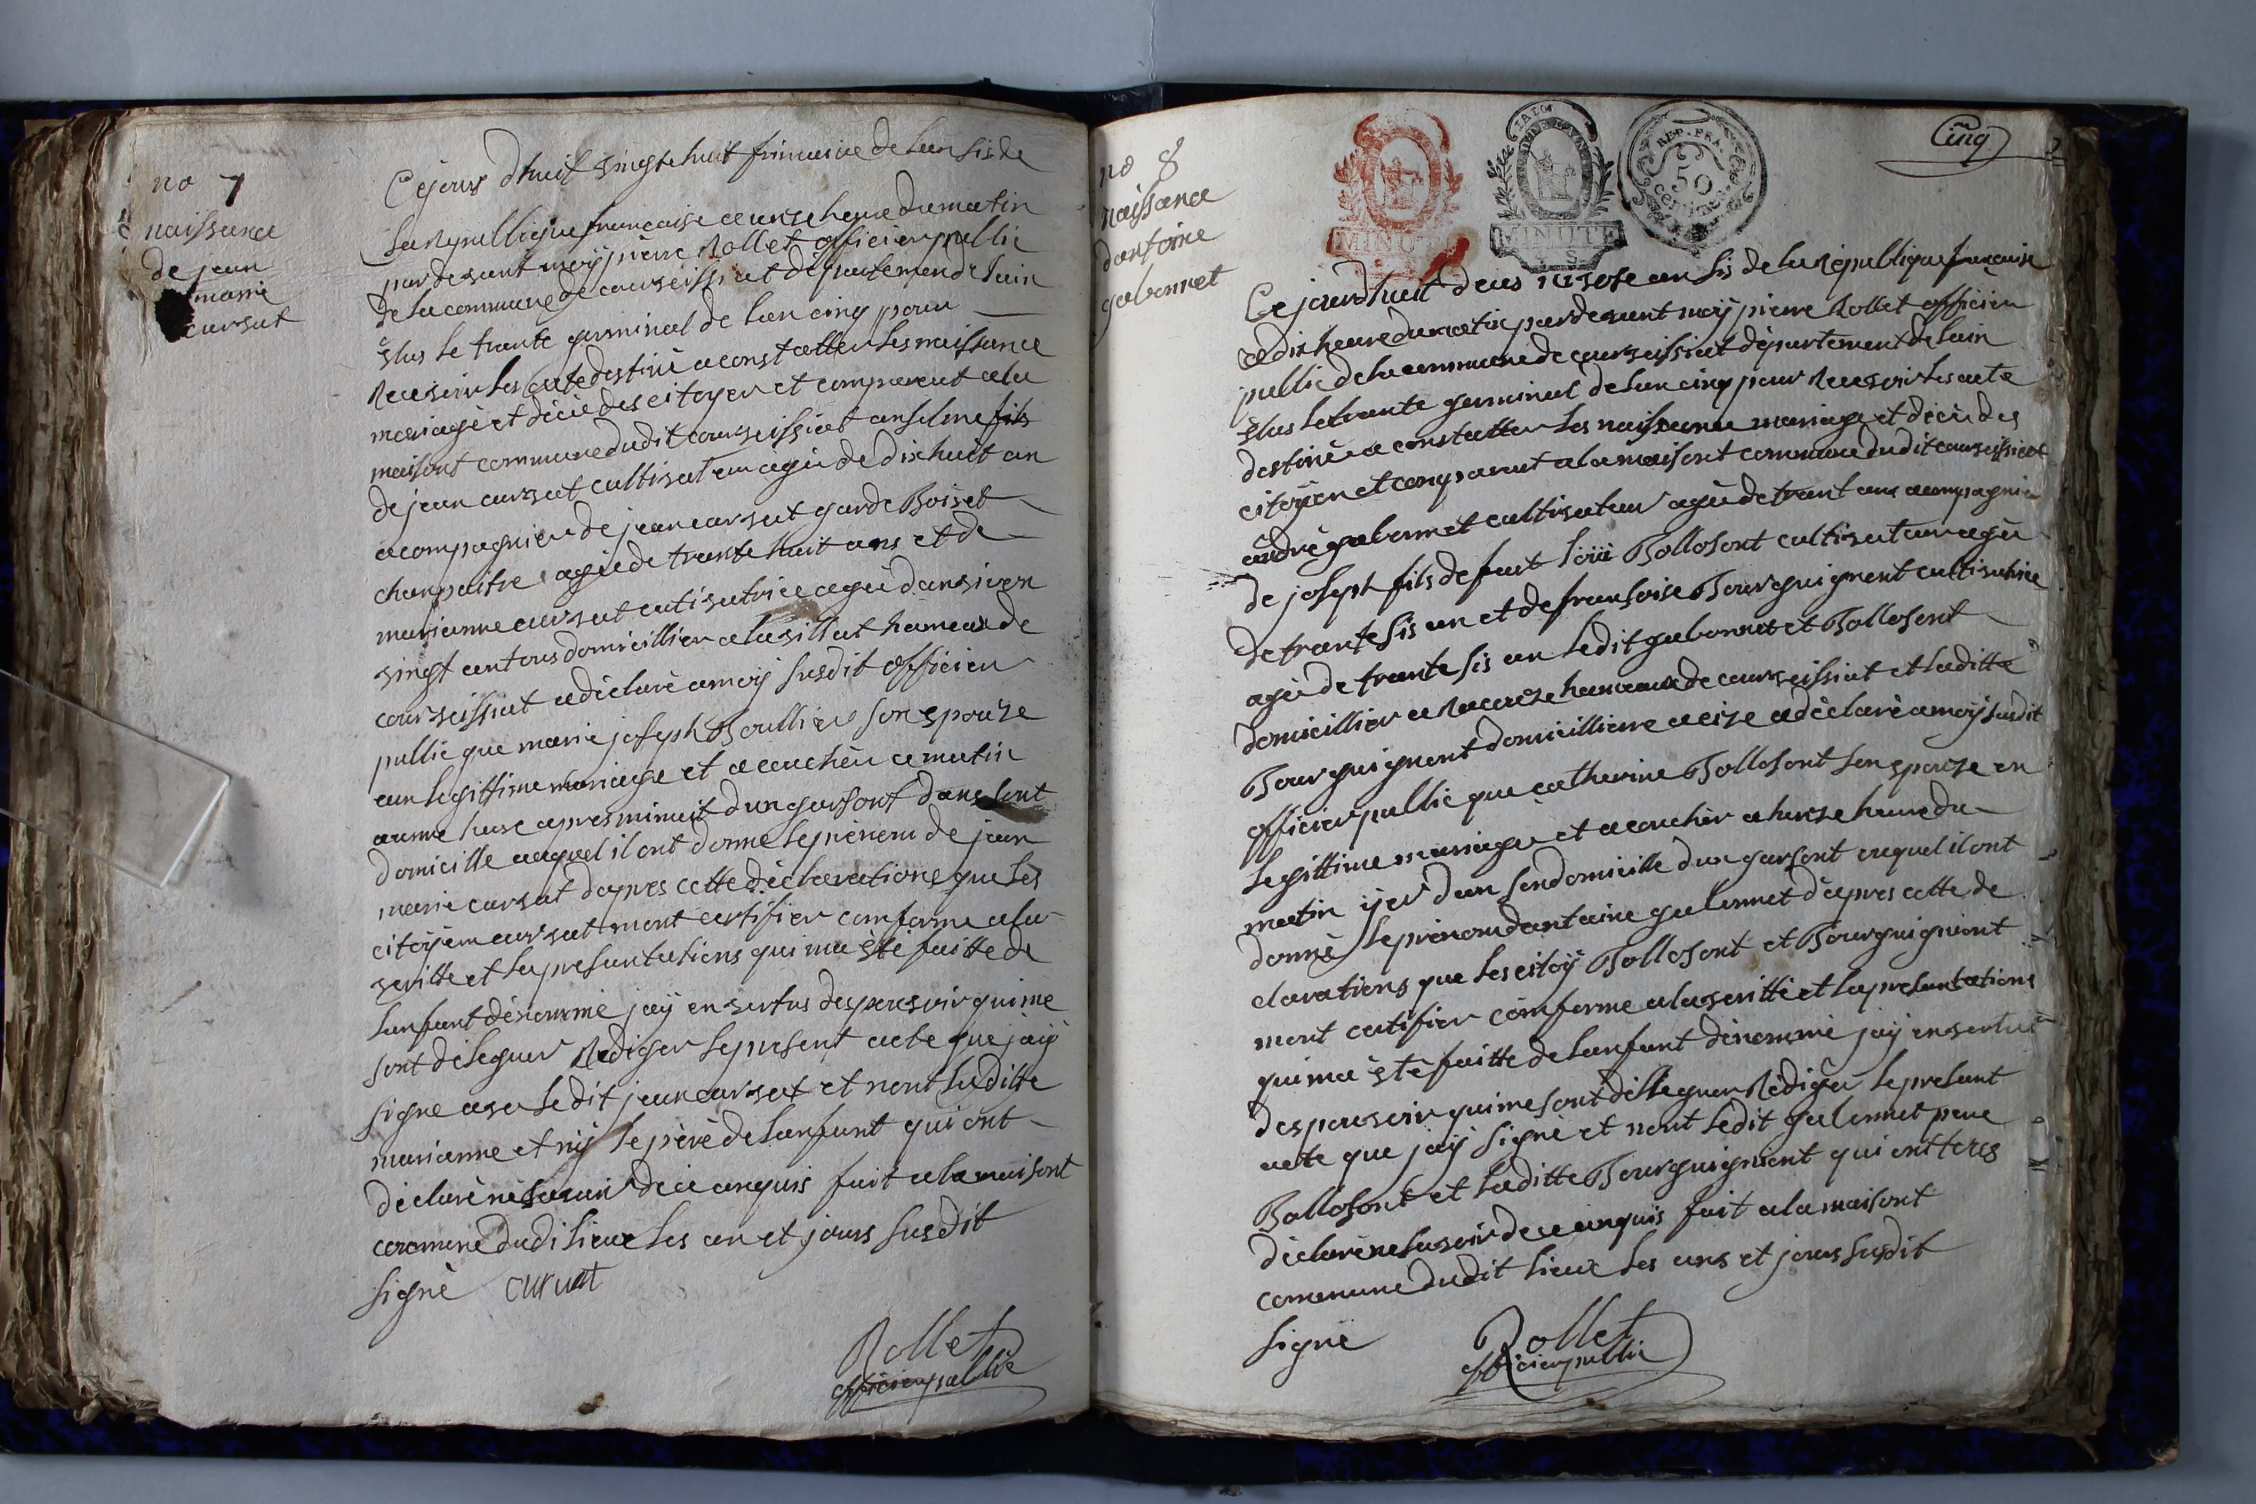 no 7
naissance
de jean
marie
cursat
Cejour dhuit vingt huit frimaire de lan sis de
la Republlique francaise a unze heure du matin
par devant moy pierre Rollet officier publlic
de la commune de courseissiat departement de lain
élus le trante germinal de lan cinq pour
Recevoir les acte destiné a constatter les naissance
mariagé et décié des citoyen et comparent a la
maisont commune dudit courseissiat anselme fils
de jean cursat cultivateur agée de dixhuit an
acompagnier de jean cursat garde Boiset
champaitre agée de trante huit ans et de
marianne cursat cutivatrice agée danviron
vingt an tous domicillier a la villat hameaux de
courseissiat a déclaré a moy susdit officier
publlic que marie joseph Boullier son épouze
eun legittime mariage et acouchér ce matin
a unne hure apres minuit dun garsont dans sont
domicille auquel il ont donné le prénom de jean
marie cursat dapres cette déclarations que les
citoyem cursat mont certifier comforme a la
veritte et la presantations qui ma été faitte de
lanfant dénommé jay en vertus des pouvoir qui me
sont déleguer Rediger le present acte que jay
signe avec le dit jean cursat et nont laditte
marianne et nÿ le pére de lanfant qui ont
déclaré ne savoir de ce anquis fait a la maisont
commune dudi lieux les an et jours susdit
signé curuat
Rollet
officier publlic
Cinq
no 8
naissance
dantoine
gabonnet
MINUTE
MINUTE
REP. FRA.
50
centimes
Ce jourdhuit deus nivose an sis de la Républlique francaise
a dix heure du matin par devant moÿ pierre Rollet officier
publlic de la commune de courseissiat département de lain
élus le trante germinal de lan cinq pour Recevoir les acte
destiné a constatter les naissance mariage et décié des
citoyen et comparant a la maisont commune dudit courseissiat
andré gabonnet cultivateur agée de trant ans acompagnier
de joseph fils de fut loüi Bollosont cultivateur agée
de trante sis an et de fransoise Bourguignont cultivatrice
agée de trante sis an ledit gabonnet et Bollosont
domicillier a Racouze hameaux de courseissiat et laditte
Bourguignont domicilliere a cize a déclaré a moÿ susdit
officier publlic que catherine Bollosont son épouze en
legittime mariage et acouchér a hunze heure du
matin ÿer dan son domicille dun garsont auquel il ont
donné le prénom dantoine gabonnet dapres cette dé
clarations que les citoÿ Bollosont et Bourguignont
mont certifier comforme a la veritté et la presantations
qui ma été faitte de lanfant dénommé jaÿ en vertu
des pouvoir qui me sont délleguer Rédiger le presant
acte que jaÿ signé et nont ledit gabonnet pere
Bollosont et laditte Bourguignont qui ont tous
déclaré ne savoir de ce anquis fait a la maisont
commune dudit lieux les ans et jours susdit
signé Rollet
officier publlic